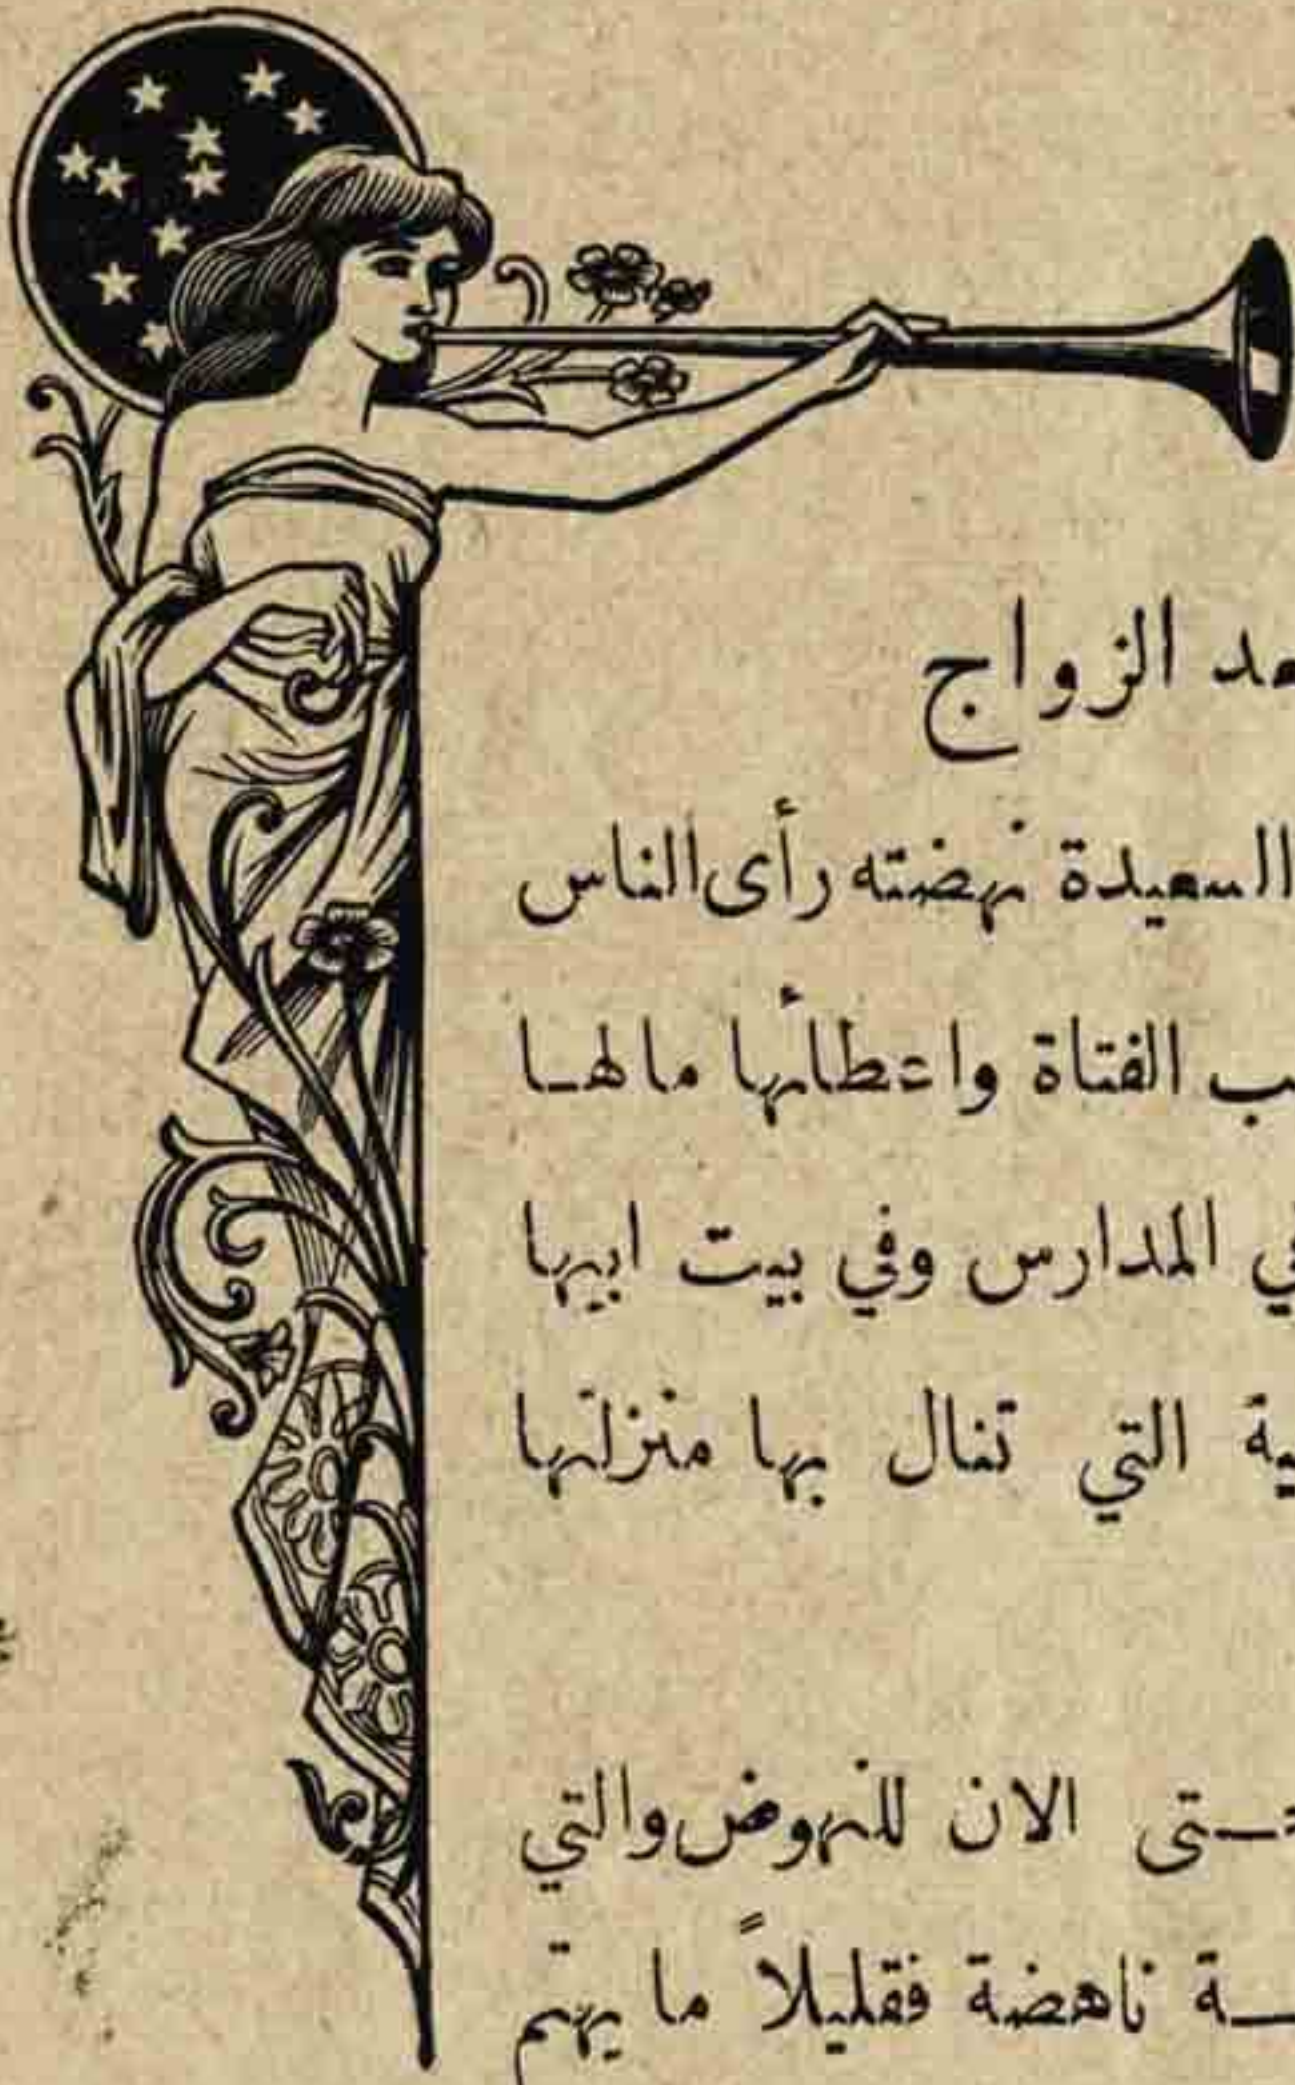 الزواج
السعيدة نهضته رأى الناس
الفتاة واعطائها مالهـا
المدارس وفي بيت ابيها
التي تنال بها منزلتها
الان للنهوض والتي
ناهضة فقليلاً ما يهتم